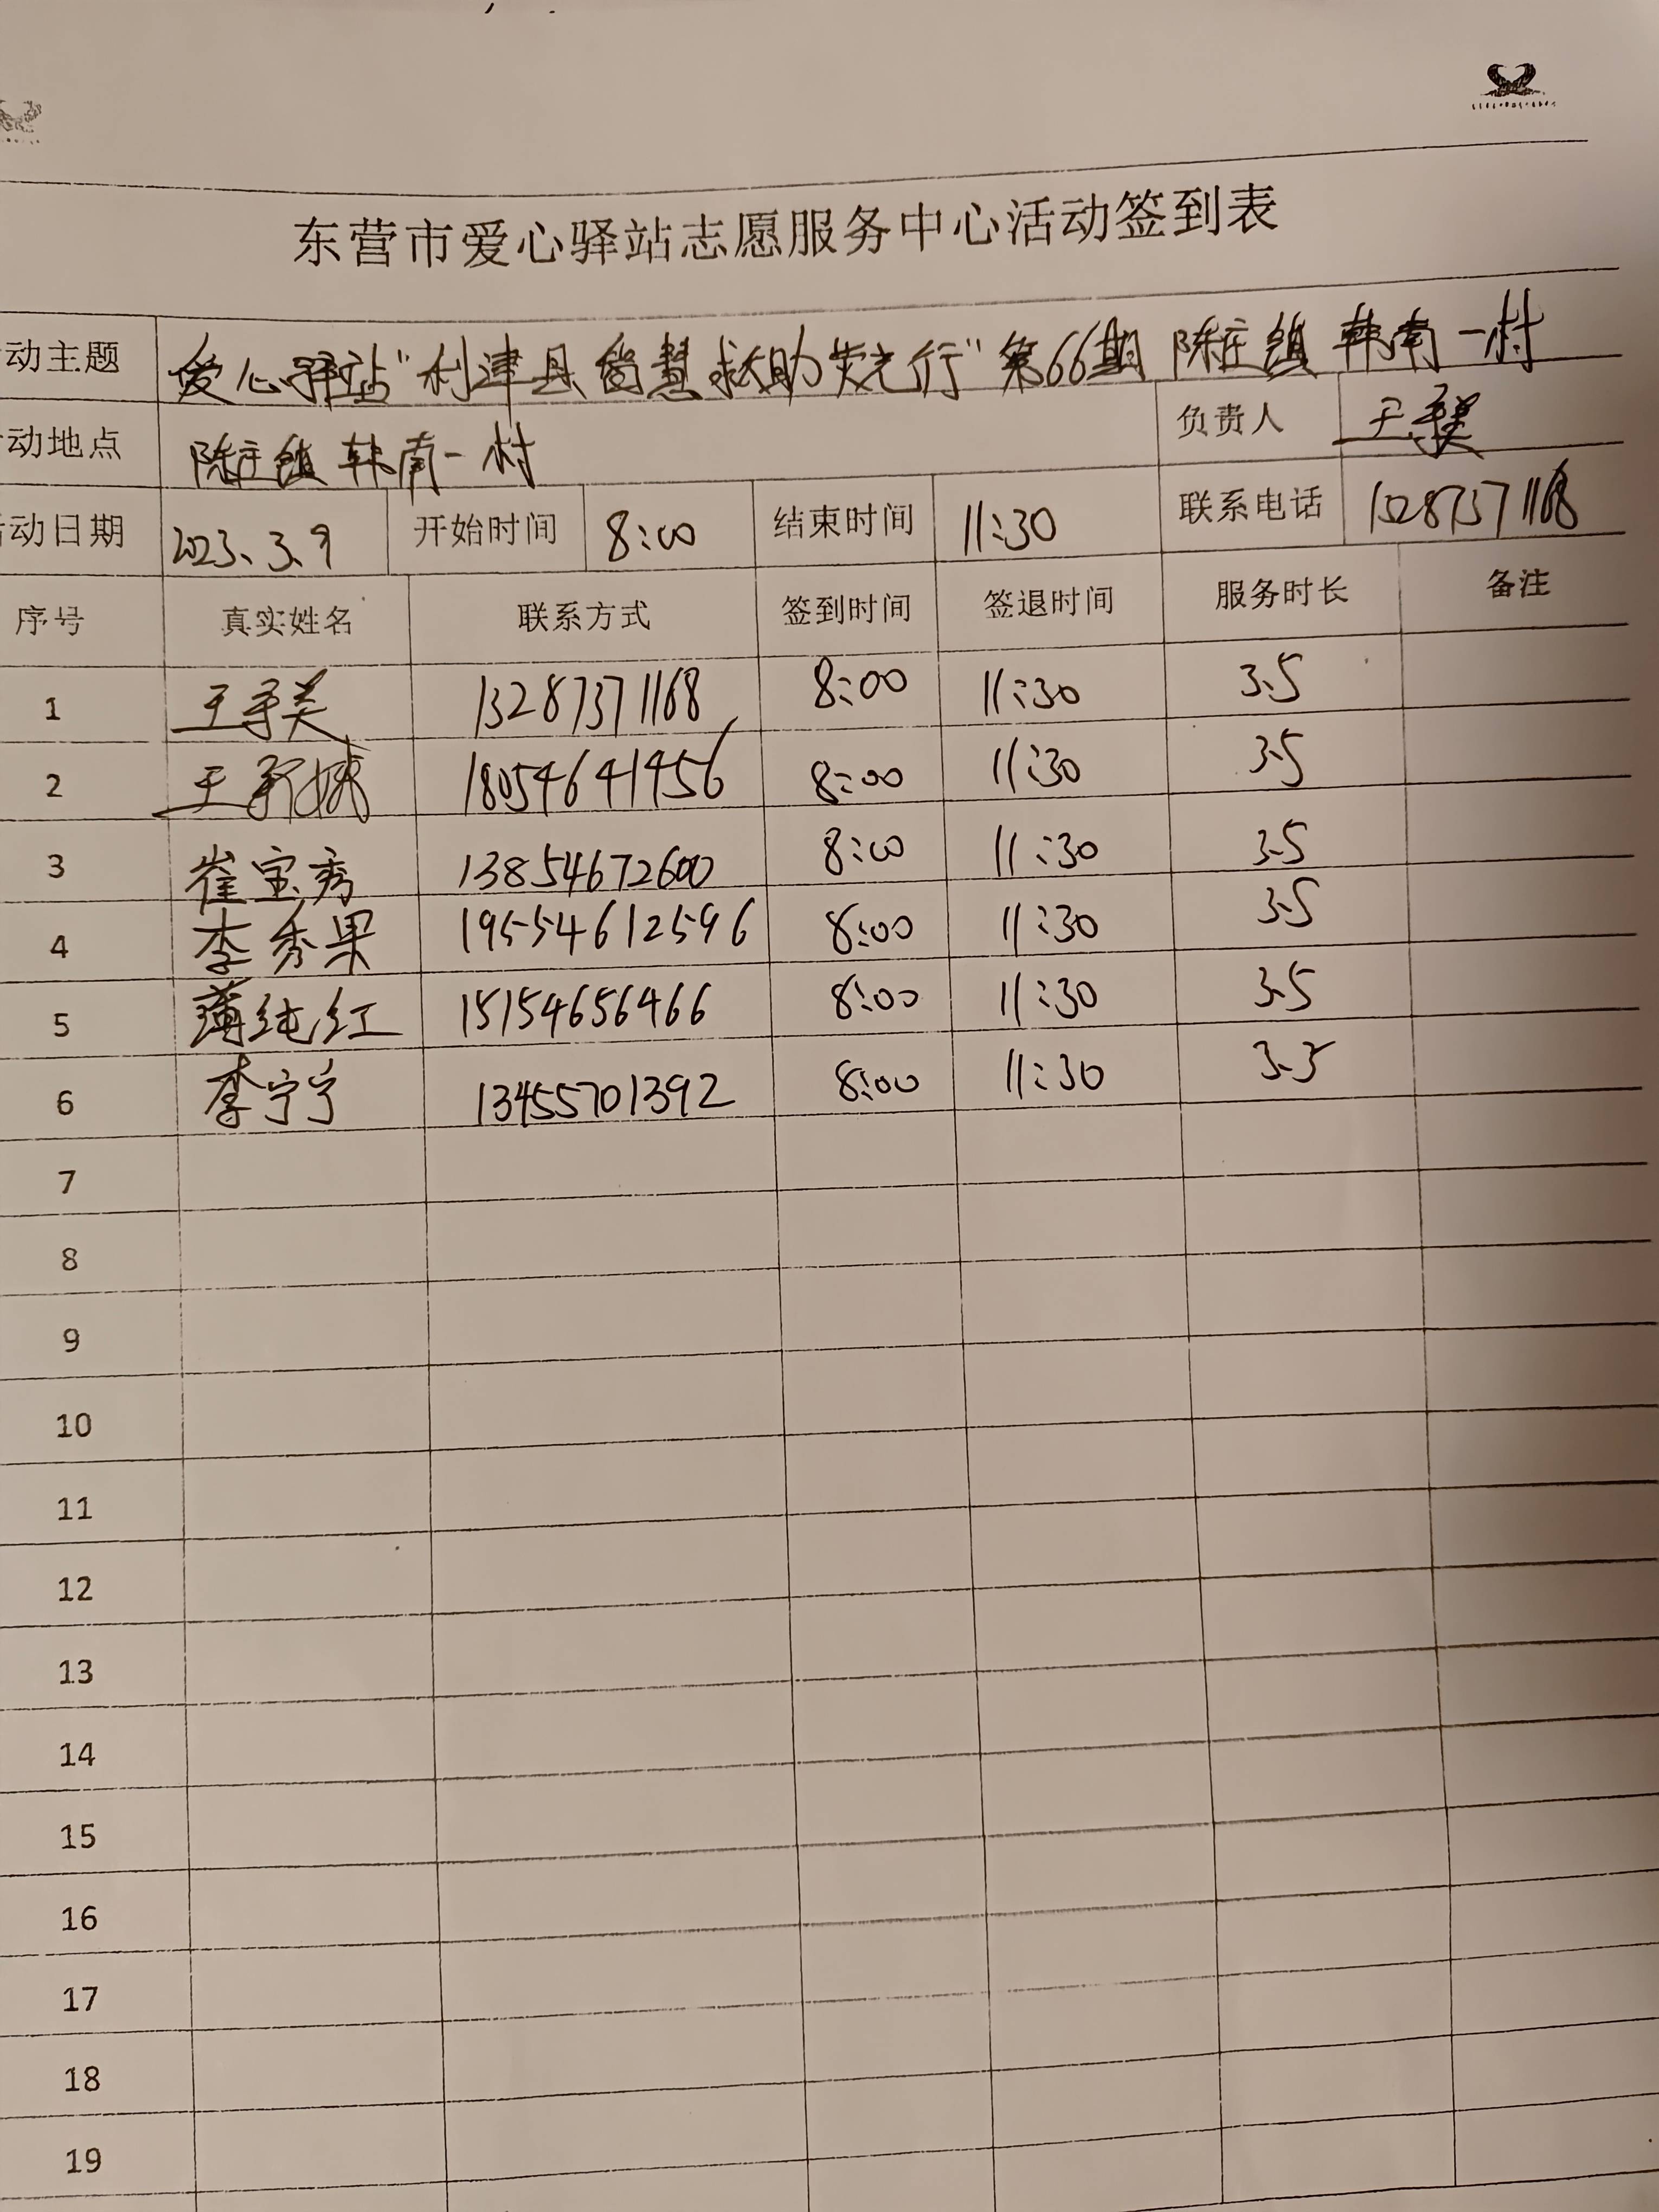 东营市爱心驿站志愿服务中心活动签到表
动主题 爱心驿站"利津县尚慧救助荧光行"第66期 陈庄镇 韩南一村
动地点 陈庄镇 韩南一村 负责人 王 美
动日期 2023.3.9 开始时间 8:00 结束时间 11:30 联系电话 13287371168
序号 真实姓名 联系方式 签到时间 签退时间 服务时长 备注
1 王 美 13287371168 8:00 11:30 3.5
2 王 18054641456 8:00 11:30 3.5
3 崔宝秀 13854672600 8:00 11:30 3.5
4 李秀果 19554612596 8:00 11:30 3.5
5 薄纯红 15154656466 8:00 11:30 3.5
6 李宁宁 13455701392 8:00 11:30 3.5
7
8
9
10
11
12
13
14
15
16
17
18
19